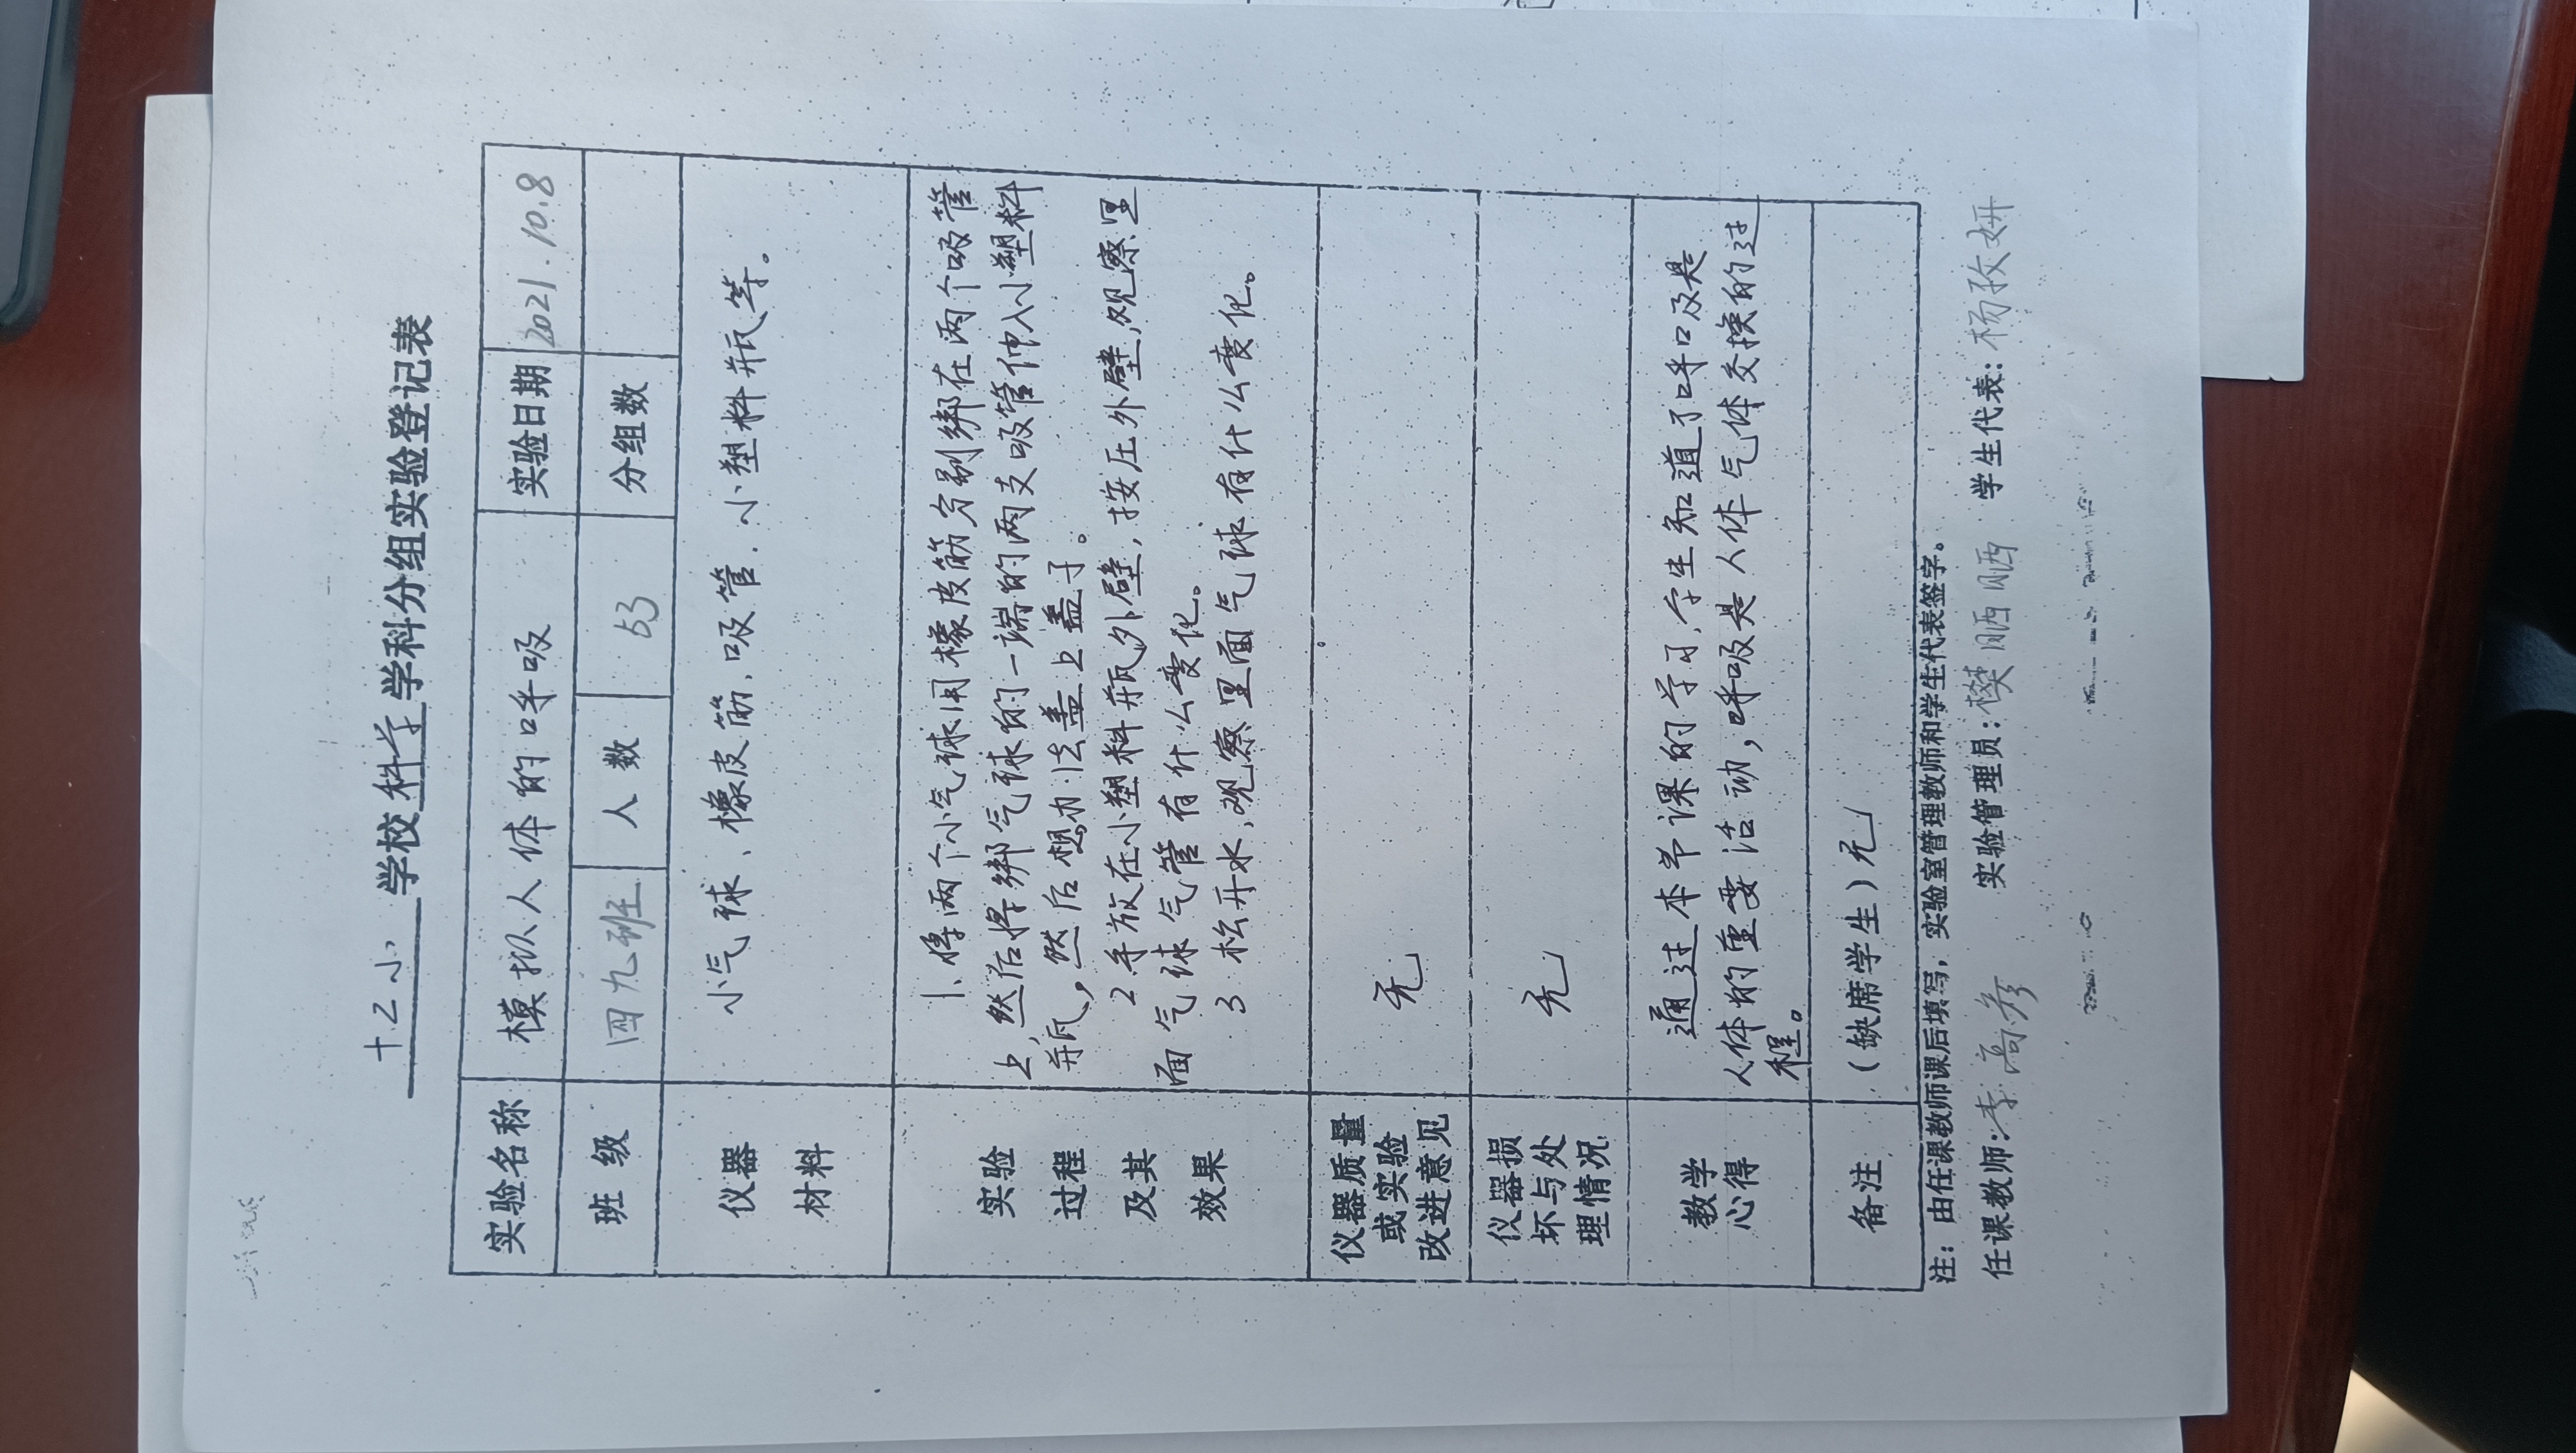 十二小学校科学学科分组实验登记表
实验名称 模拟人体的呼吸 实验日期 2021.10.8
班级 四九班 人数 53 分组数
仪器 小气球、橡皮筋、吸管、小塑料瓶等。
材料
实验 1、将两个小气球用橡皮筋分别绑在两个吸管
过程 上,然后将绑气球的一端的两支吸管伸入小塑料
及其 瓶,然后想办法盖上盖子。
效果 2手放在小塑料瓶外壁,按压外壁,观察里
面气球气管有什么变化。
3松开水,观察里面气球有什么变化。
仪器质量
或实验 无
改进意见
仪器损
坏与处 无
理情况
教学 通过本节课的学习,学生知道了呼口及是
心得 人体的重要活动,呼吸是人体气体交换的过
程。
备注 (缺席学生)无
注:由任课教师课后填写,实验室管理教师和学生代表签字。
任课教师:李高 实验管理员:樊晒晒 学生代表:杨孜妍